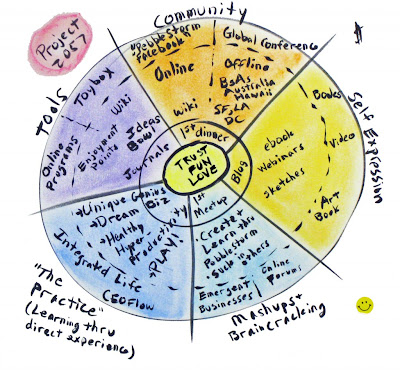 Project
2057
$
Community
Tools
Self Expression
Mashups +
Braincracking
"The
Practice"
(Learning thru
direct experience)
"Pebblestorm
Facebook"
Online
Wiki
Global Conference
Offline
BsAs
Australia
Hawaii
SF, LA
DC
Books
Video
Art
Book
ebook
Webinars
sketches
Create +
Learn thru
Pebblestorm
Guide others
Emergent
Businesses
Online
Forums
Unique Genius
Dream Biz
Healthy
Hyper
Productivity
PLAY!
Integrated Life
CEOFlow
Toybox
Wiki
Ideas
Bowl
Journals
Online
Programs
Enjoyment
Points
1st dinner
Blog
1st
Meetup
TRUST
FUN
LOVE